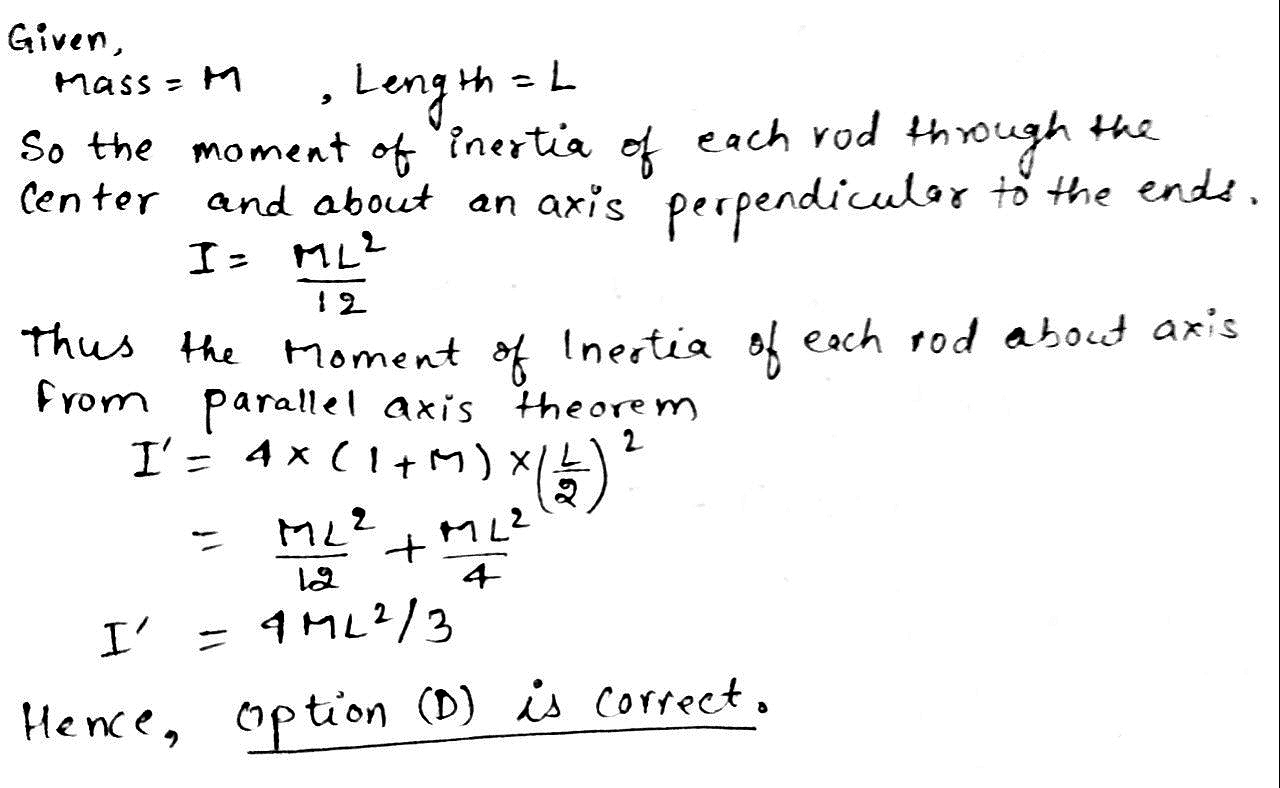 Given,
Mass = M , Length = L
So the moment of inertia of each rod through the
Center and about an axis perpendicular to the ends.
I = ML²/12
Thus the Moment of Inertia of each rod about axis
from parallel axis theorem
I' = 4 × (1 + M) × (L/2)²
= ML²/12 + ML²/4
I' = 4ML²/3
Hence, option (D) is correct.